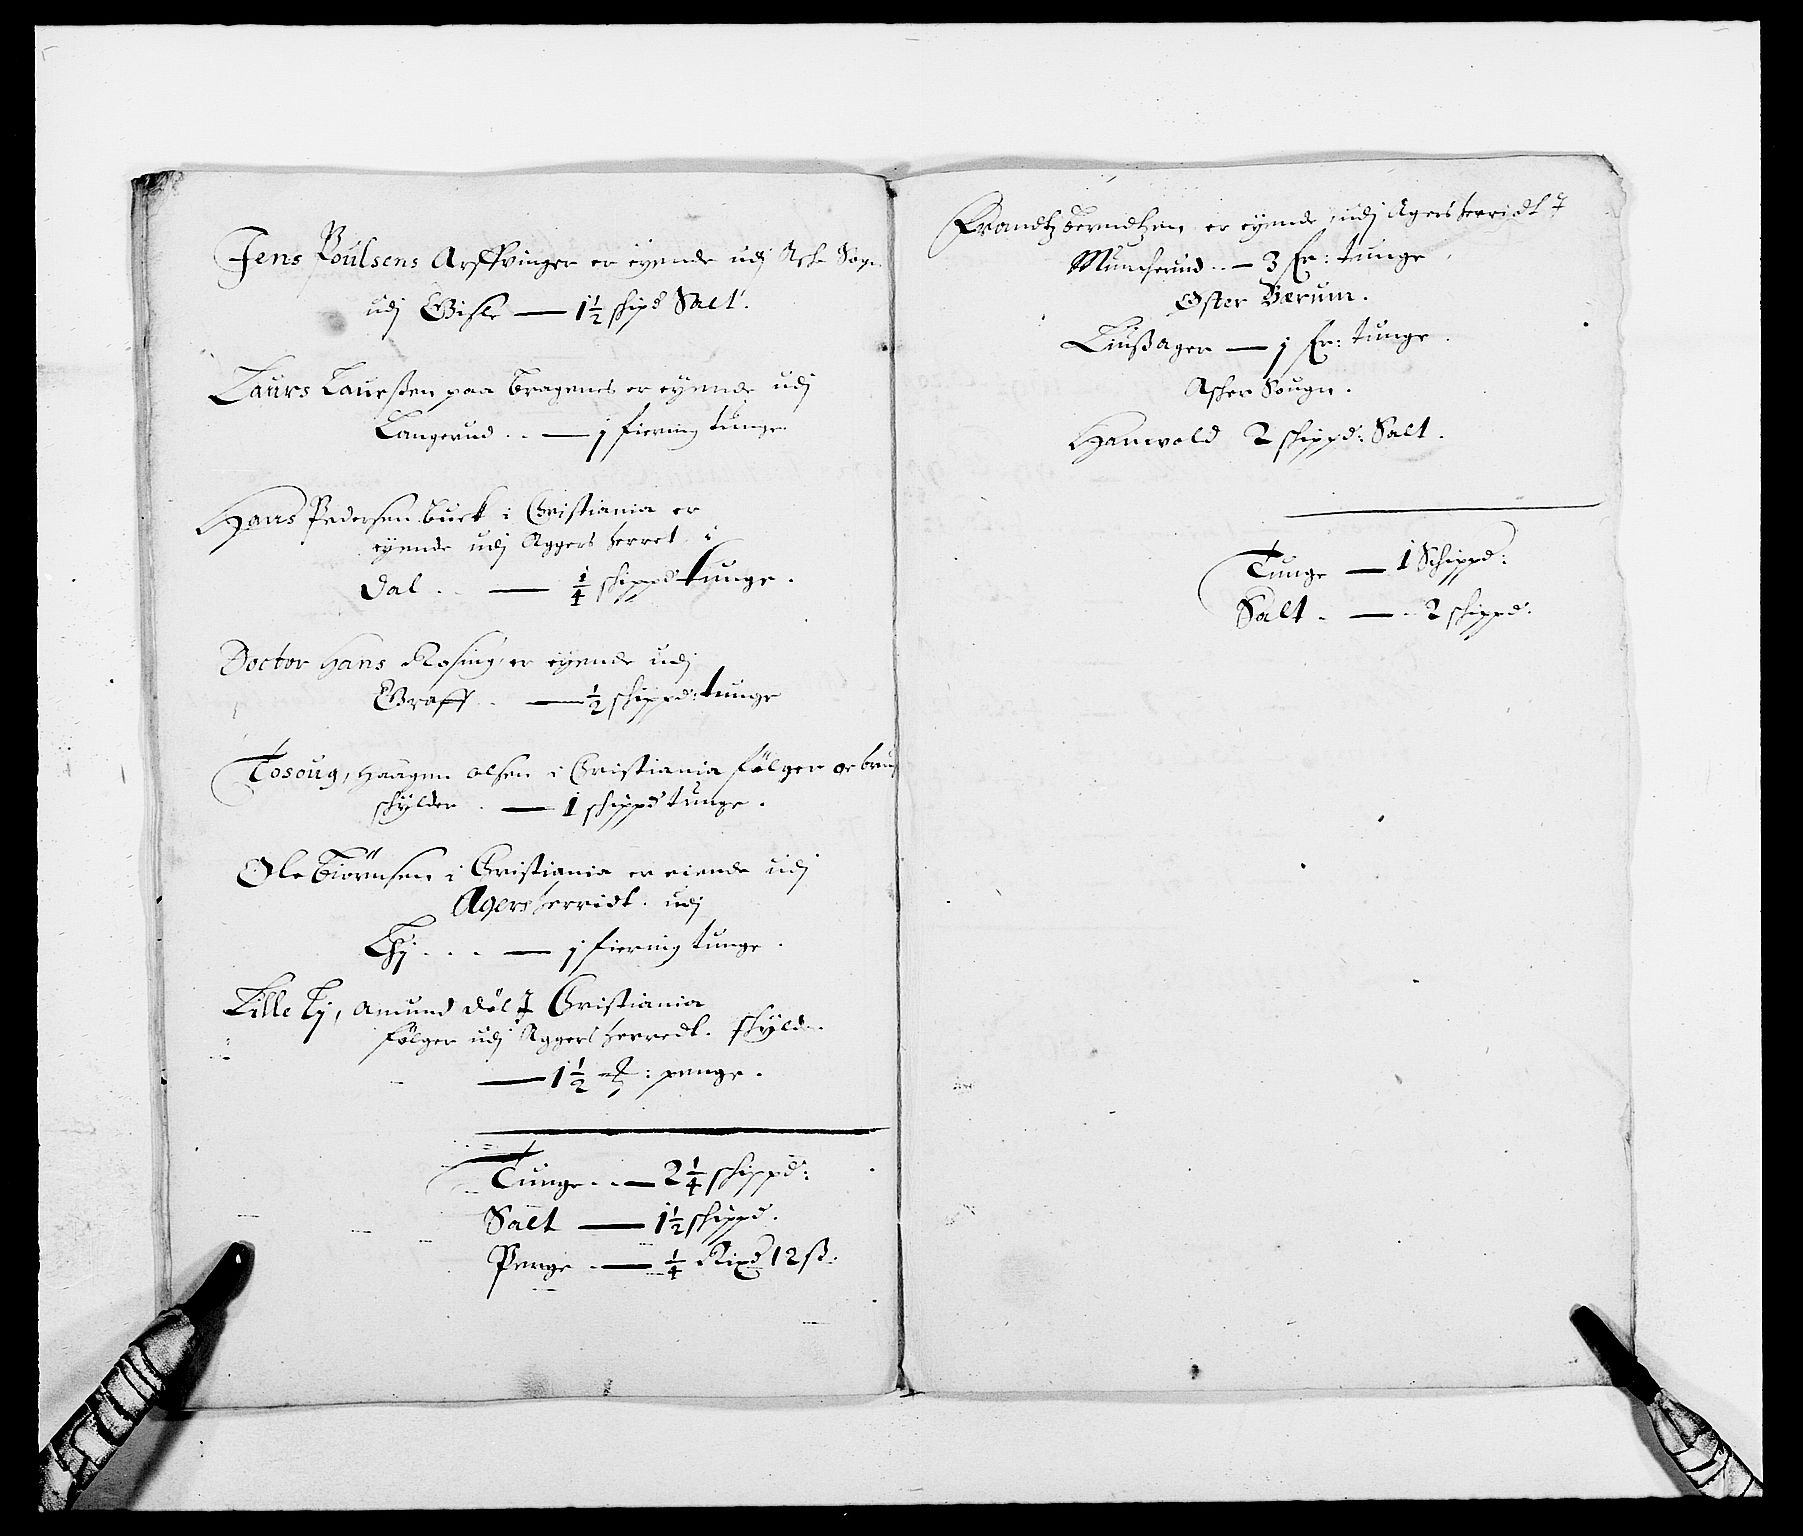 Jens Poulsens Arffvinger er eyende udj Asker Sogn
udj Gisle — 1½ skipd Salt.
Laurs Laurssen paa Bragenes er eyende udj
Langerud . . — j fiering tunge
Hans Pedersen Buck i Christiania er
eyende udj Aggers herret i
Dal . . — ¼ skippd tunge.
Doctor Hans Rosing er eyende udj
Graff . — ½ skippd: tunge
Tosoug, Haagen Olsen i Christiania følger och brug
skylder . — 1 skippd tunge.
Ole Biörnsen i Christiania er eiende udj
Agers herridt. udj
Lhj . . . — j fiering tunge.
Lille Lj, Amund Döl i Christiania
følger udj Aggers herredt. skylder
— 1½ : penge.
Tunge . . — 2¼ skippd:
Salt — 1½ skippd.
Penge . — ¼ Rixd 12 ß:
Frandtz Berndtzen er eyende udj Agers herridt i
Muncherud . . — 3 fer: tunge.
Øster Bærum.
Liusager — j fer: tunge.
Asker Sougn.
Hanevold 2 skippd: Salt.
Tunge — 1 Schippd:
Salt . — . 2 skippd: